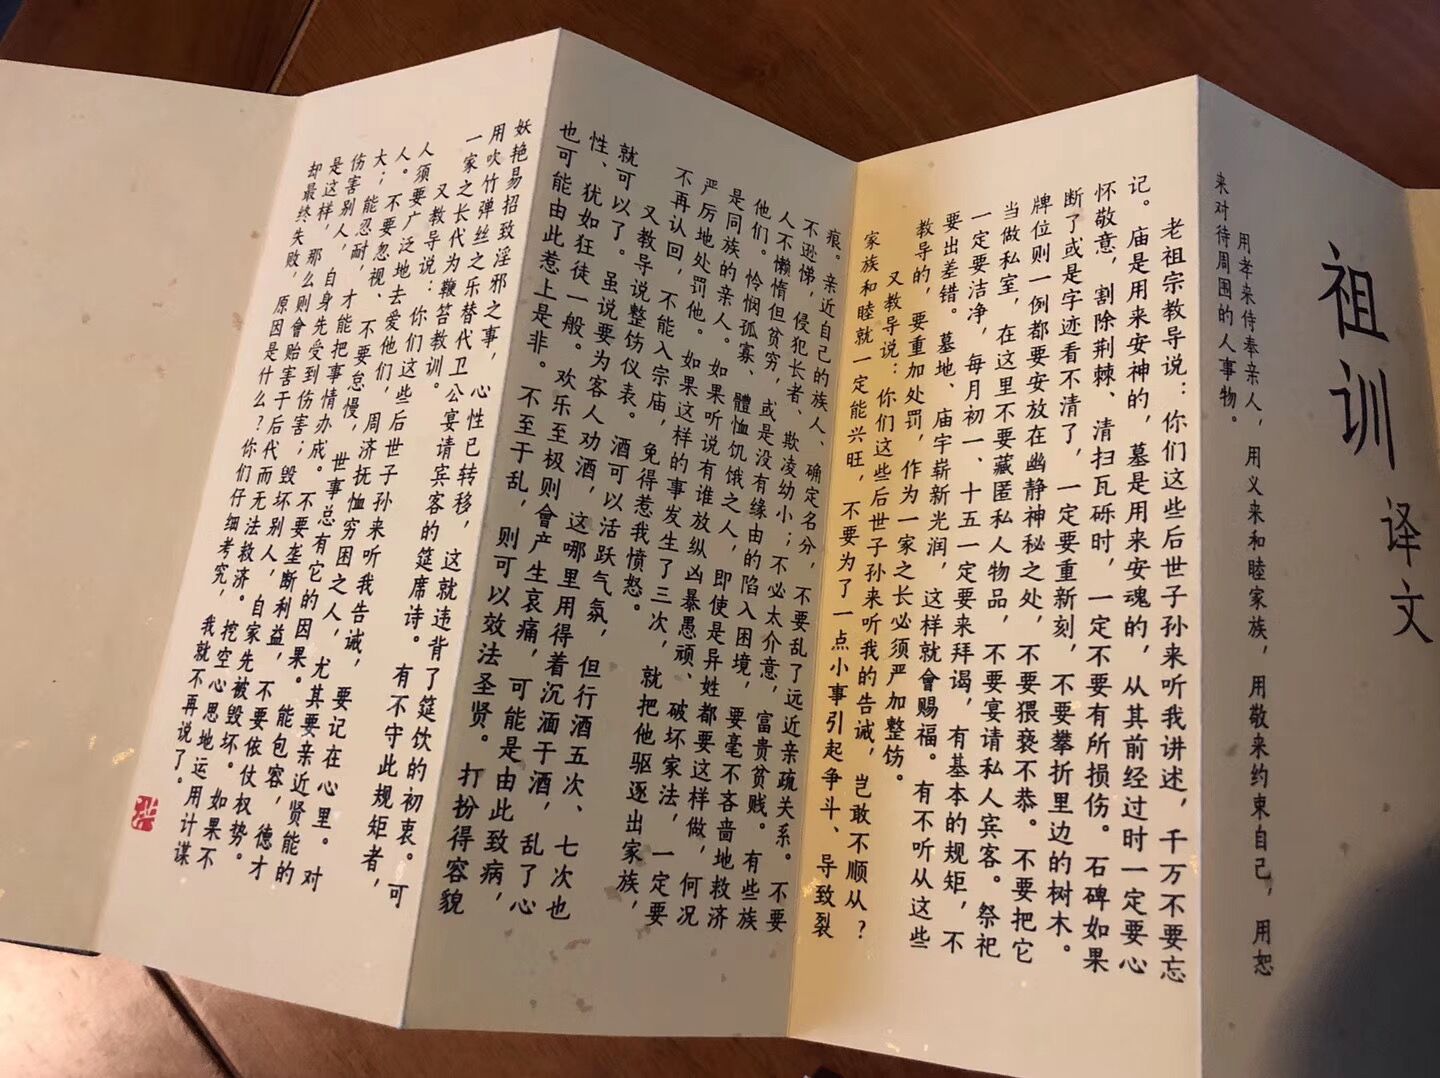 祖训译文
用孝来侍奉亲人，用义来和睦家族，用敬来约束自己，用恕
来对待周围的人事物。
老祖宗教导说：你们这些后世子孙来听我讲述，千万不要忘
记。庙是用来安神的，墓是用来安魂的，从其前经过时一定要心
怀敬意，割除荆棘、清扫瓦砾时，一定不要有所损伤。石碑如果
断了或是字迹看不清了，一定要重新刻，不要攀折里边的树木。
牌位则一例都要安放在幽静神秘之处，不要猥亵不恭。不要把它
当做私室，在这里不要藏匿私人物品，不要宴请私人宾客。祭祀
一定要洁净，每月初一、十五一定要来拜谒，有基本的规矩，不
要出差错。墓地、庙宇崭新光润，这样就會赐福。有不听从这些
教导的，要重加处罚，作为一家之长必须严加整饬。
又教导说：你们这些后世子孙来听我的告诫，岂敢不顺从？
家族和睦就一定能兴旺，不要为了一点小事引起争斗、导致裂
痕。亲近自己的族人、确定名分，不要乱了远近亲疏关系。不要
不逊悌，侵犯长者、欺凌幼小；不必太介意，富贵贫贱。有些族
人不懒惰但贫穷，或是没有缘由的陷入困境，要毫不吝啬地救济
他们。怜悯孤寡、體恤饥饿之人，即使是异姓都要这样做，何况
是同族的亲人。如果听说有谁放纵凶暴愚顽、破坏家法，一定要
严厉地处罚他。如果这样的事发生了三次，就把他驱逐出家族，
不再认回，不能入宗庙，免得惹我愤怒。
又教导说整饬仪表。酒可以活跃气氛，但行酒五次、七次也
就可以了。虽说要为客人劝酒，这哪里用得着沉湎于酒，乱了心
性、犹如狂徒一般。欢乐至极则會产生哀痛，可能是由此致病，
也可能由此惹上是非。不至于乱，则可以效法圣贤。打扮得容貌
妖艳易招致淫邪之事，心性已转移，这就违背了筵饮的初衷。可
用吹竹弹丝之乐替代卫公宴请宾客的筵席诗。有不守此规矩者，
一家之长代为鞭笞教训。
又教导说：你们这些后世子孙来听我告诫，要记在心里。对
人须要广泛地去爱他们，周济抚恤穷困之人，尤其要亲近贤能的
人。不要忽视、不要怠慢，世事总有它的因果。能包容，德才
大；能忍耐，才能把事情办成。不要垄断利益，不要依仗权势。
伤害别人，自身先受到伤害；毁坏别人，自家先被毁坏。如果不
是这样，那么则會贻害于后代而无法救济。挖空心思地运用计谋
却最终失败，原因是什么？你们仔细考究，我就不再说了。